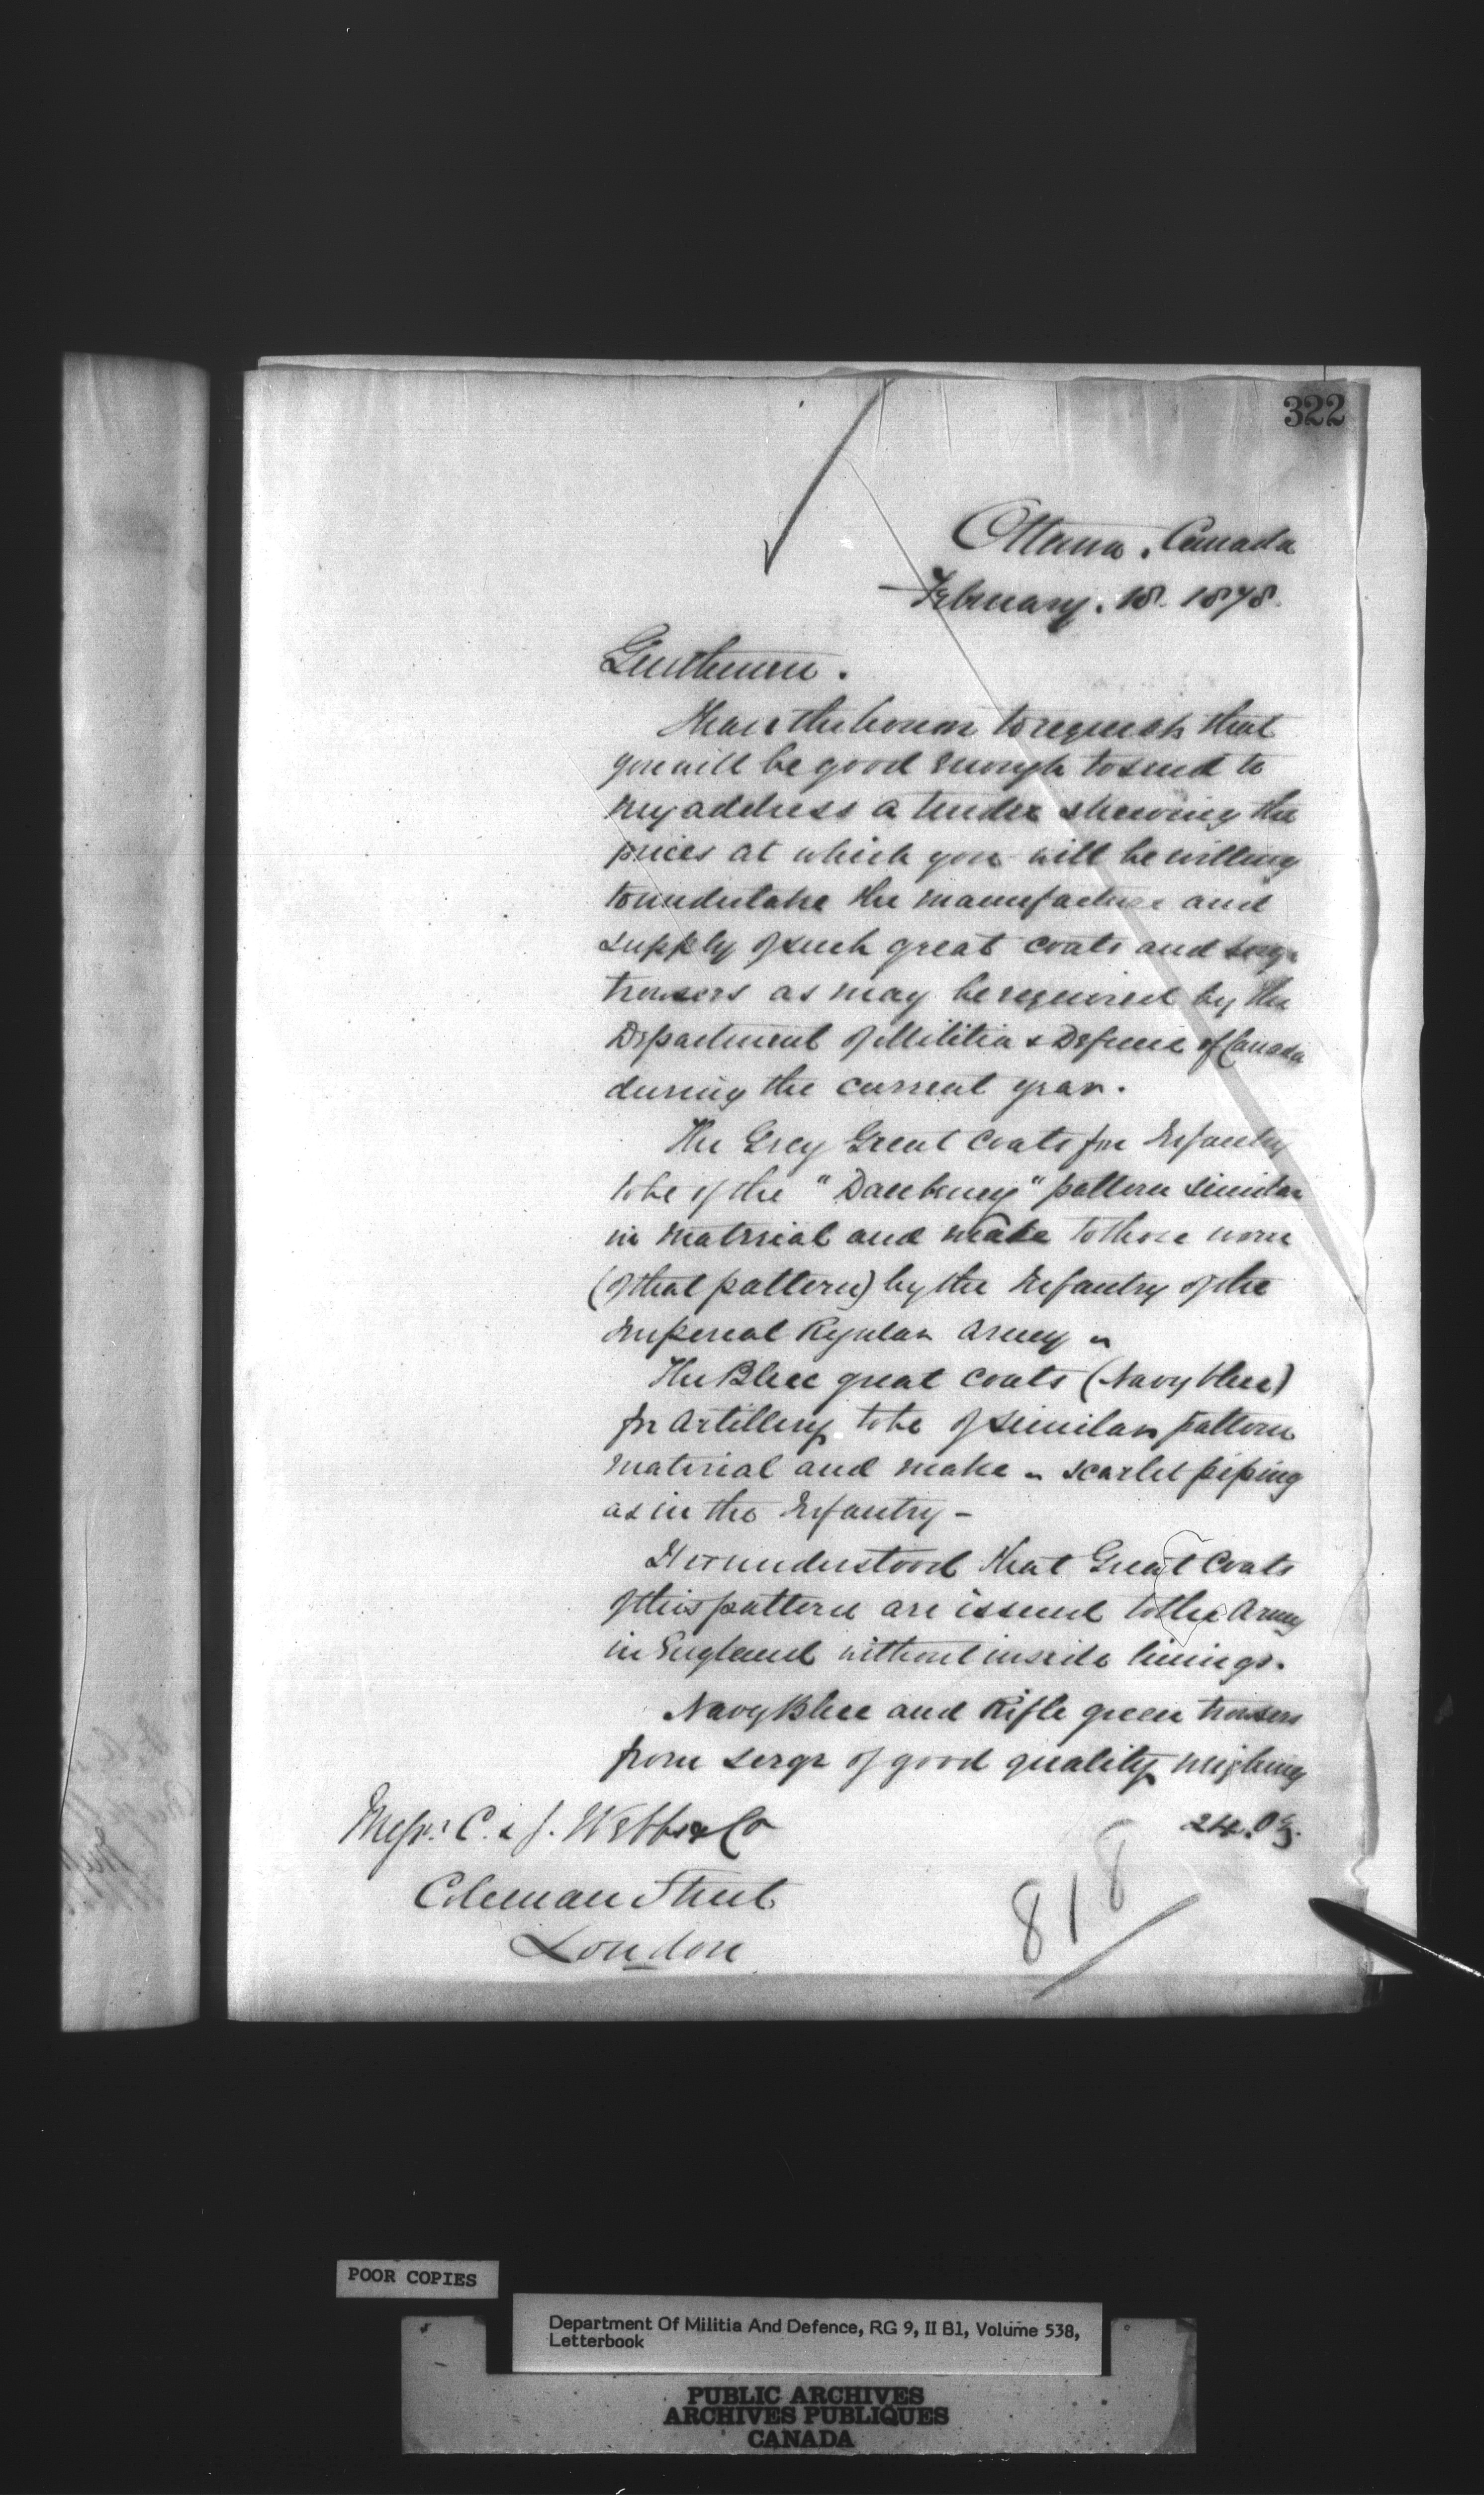 322
Ottawa. Canada
February. 18. 1878.
Gentlemen.
I have the honor to request that
you will be good enough to send to
my address a tender shewing the
prices at which you will be willing
to undertake the manufacture and
supply of such great coats and serge
trousers as may be required by the
Department of Militia & Defence of Canada
during the current year.
The Grey Great Coats for Infantry
to be of the " " pattern similar
in material and make to those worn
(of that pattern) by the Infantry of the
Imperial Regular Army -
The Blue great coats (Navy blue)
for Artillery to be of similar pattern
material and make - scarlet piping
as in the Infantry -
It is understood that Great Coats
of this pattern are issued to the Army
in England without inside linings.
Navy Blue and Rifle green trousers
from serge of good quality weighing
24. Oz.
Messrs. C. & J. Webb & Co
Coleman Street
London
818
POOR COPIES
Department Of Militia And Defence, RG 9, II B1, Volume 538,
Letterbook
PUBLIC ARCHIVES
ARCHIVES PUBLIQUES
CANADA